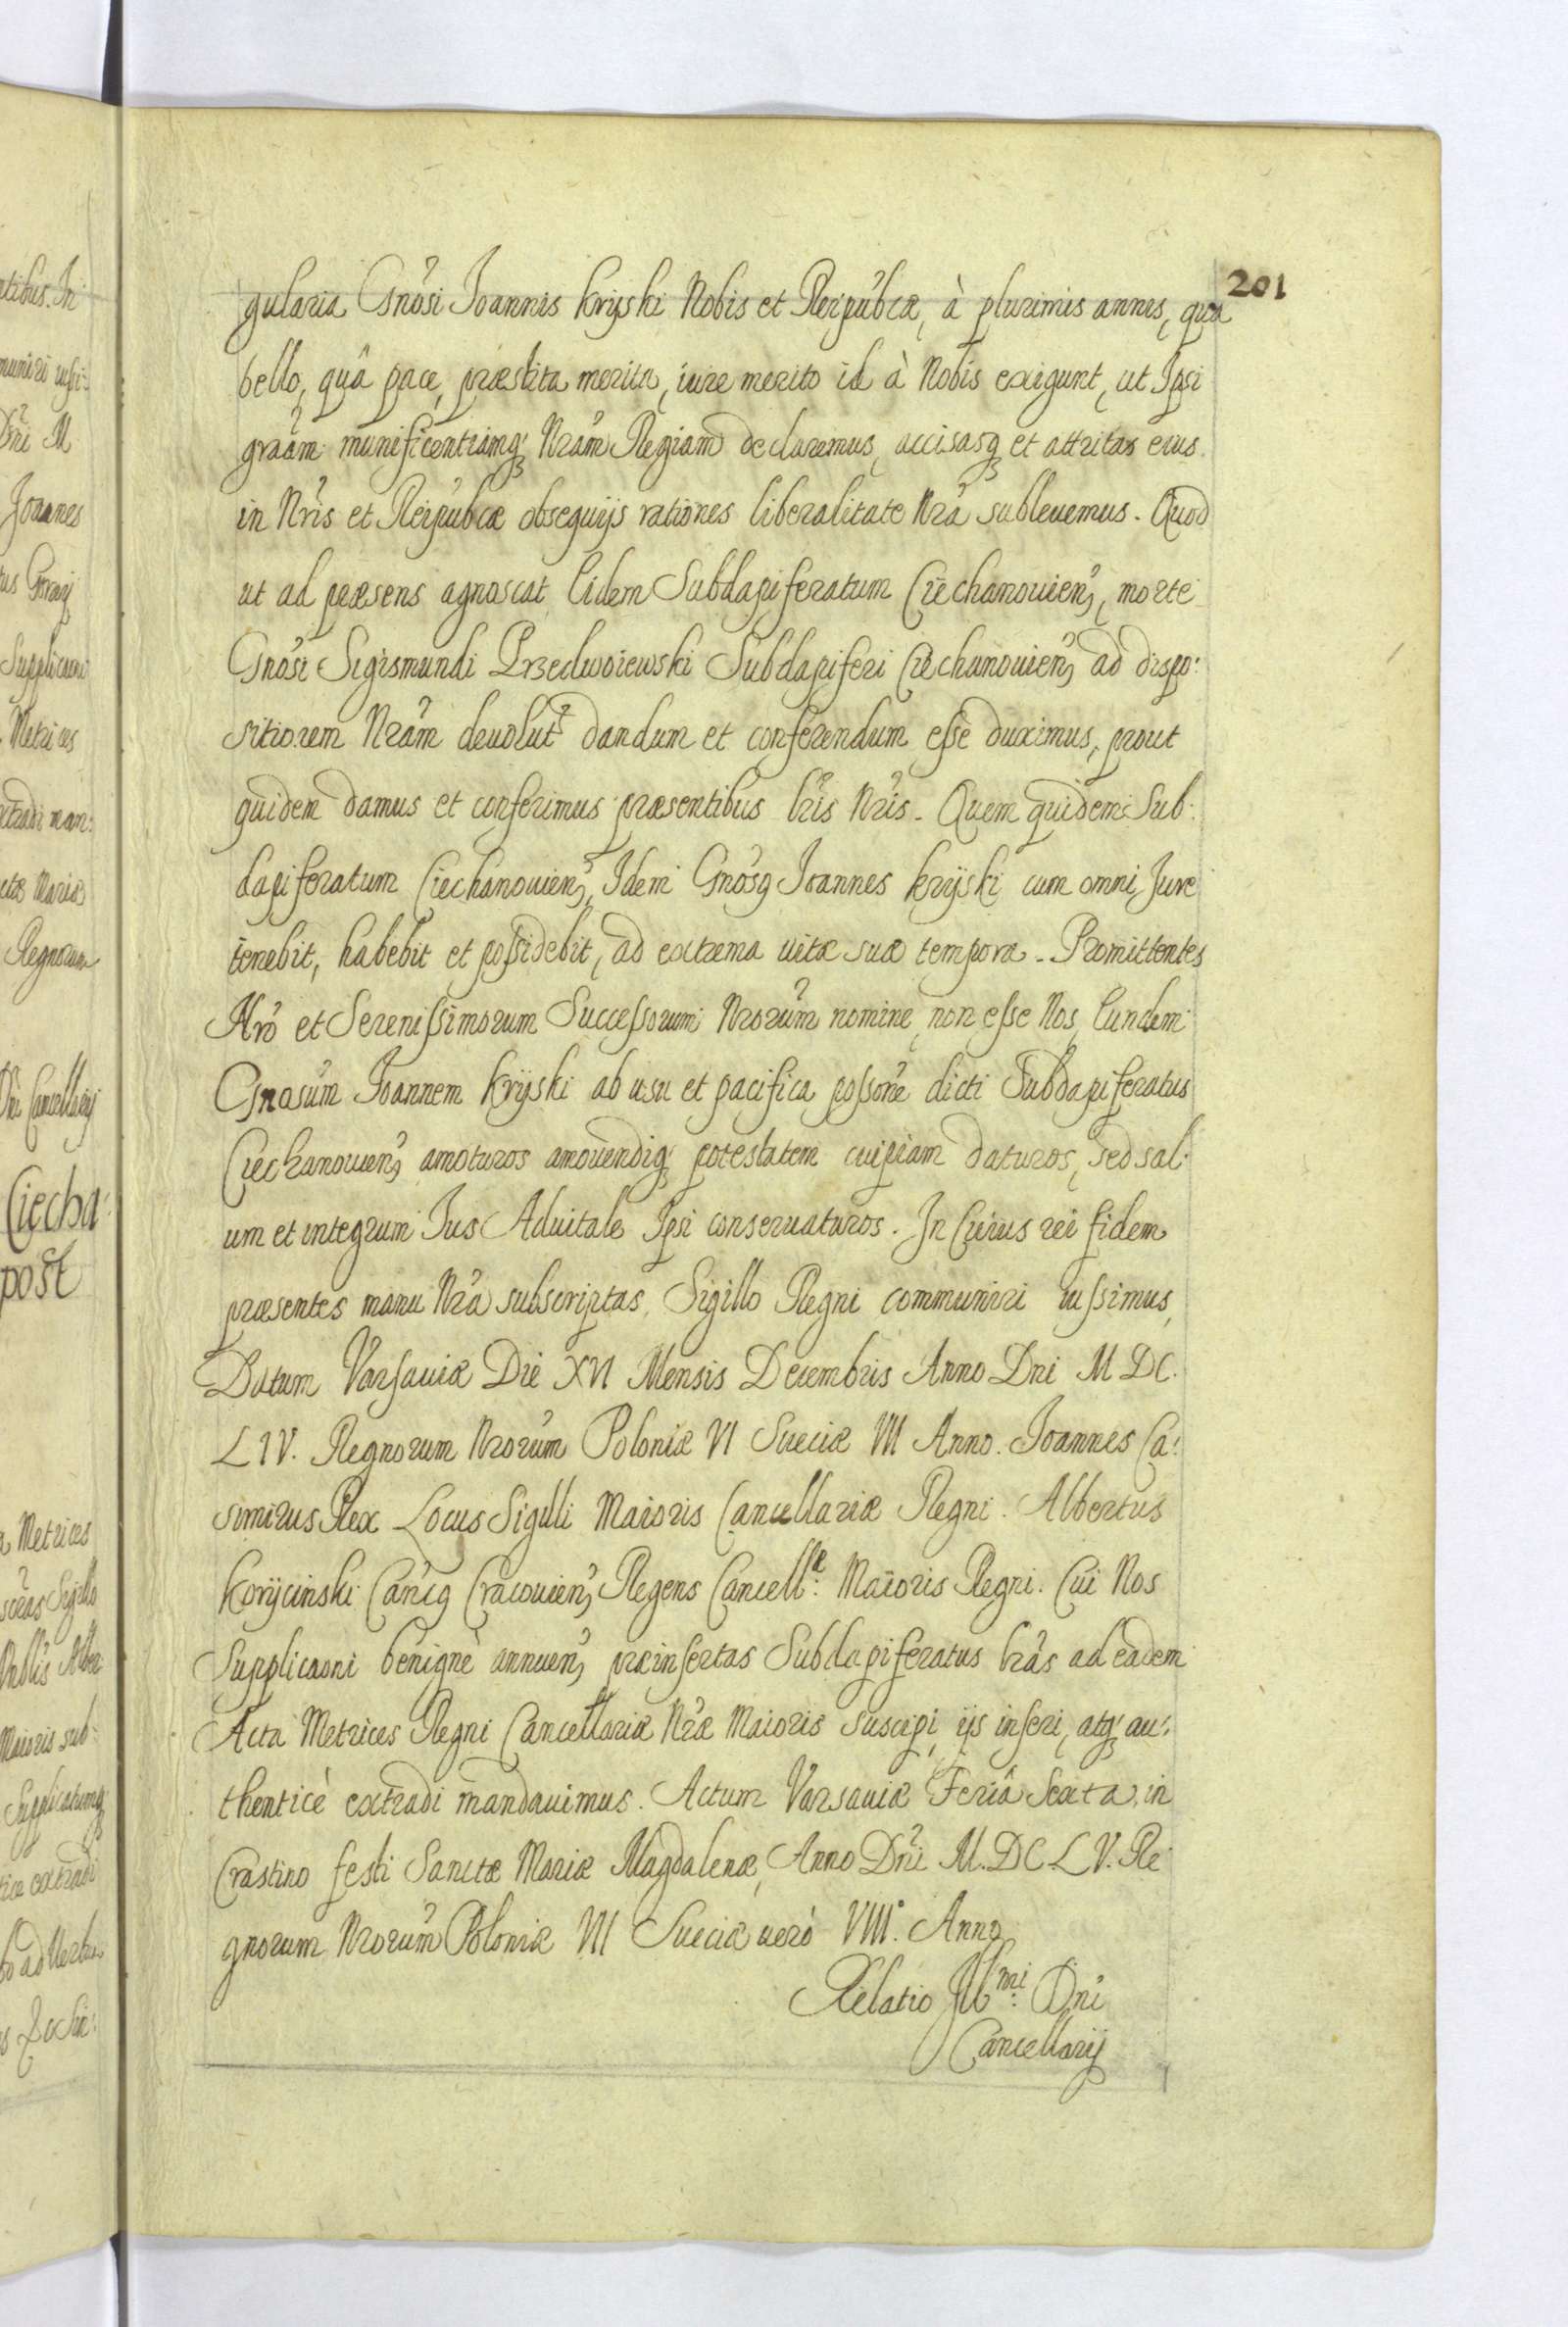 201
gularia Gnósi Ioannis Kryski Nobis et Reipúbcæ, à plurimis annis, qua
bello, quâ pace, præstita merita, iure merito id à Nobis exigunt, ut Ipsi
graam munificentiamq́ꝫ Nrám Regiam declaremus, accisasqꝫ et attritas eius
in Nrís et Reipúbcæ obsequijs rationes liberalitate Nrá subleuemus. Quod
ut ad præsens agnoscat Eidem Subdapiferatum Ciechanouienꝫ, morte
Gnósi Sigismundi Przedwoiewski Subdapiferi Ciechanouienꝫ ad dispo:
sitionem Nrám deuolut dandum et conferendum esse duximus, prout
quidem damus et conferimus præsentibus lrís Nrís. Quem quidem Sub:
dapiferatum Ciechanouienꝫ, Idem Gnósꝗ Ioannes Kryski cum omni Iure
tenebit, habebit et possidebit, ad extrema uitæ suæ tempora. Promittentes
Nró et Serenissimorum Successorum Nrorúm nomine, non esse Nos, Eundem
Gnosúm Ioannem Kryski ab usu et pacifica possoné dicti Subdapiferatus
Ciechanouienꝫ amoturos amouendiq́ꝫ potestatem cuipiam daturos, sed sal:
um et integrum Ius Aduitale Ipsi conseruaturos. In Cuius rei fidem
præsentes manu Nrá subscriptas, Sigillo Regni communiri iussimus,
Datum Varsauiæ Die XVI Mensis Decembris Anno Dni M DC.
LIV. Regnorum Nrorúm Poloniæ VI Sueciæ VII Anno. Ioannes Ca:
simirus Rex Locus Sigilli Maioris Cancellariæ Regni. Albertus
Korycinski Cancꝗ Cracouienꝫ Regens Cancellæ: Maioris Regni. Cui Nos
Supplicaoni benignè annuenꝫ præinsertas Subdapiferatus lrás ad eadem
Acta Metrices Regni Cancellariæ Nræ Maioris suscipi, ijs inseri, atq́ꝫ au:
thenticè extradi mandauimus. Actum Varsauiæ Feriâ Sexta in
Crastino festi Sanctæ Mariæ Magdalenæ, Anno Dní M.DC.LV. Re
gnorum Nrorúm Poloniæ VII Sueciæ uerò VIII. Anno
Relatio Illmi: Dní
Cancellarij
ntibus. In
Dní M
Joannes
Supplicaoni
Metrices
extradi man:
Regnorum
Dní Cancellarij
Ciecha:
post
Metrices
Sigillo
Maioris sub:
extradi